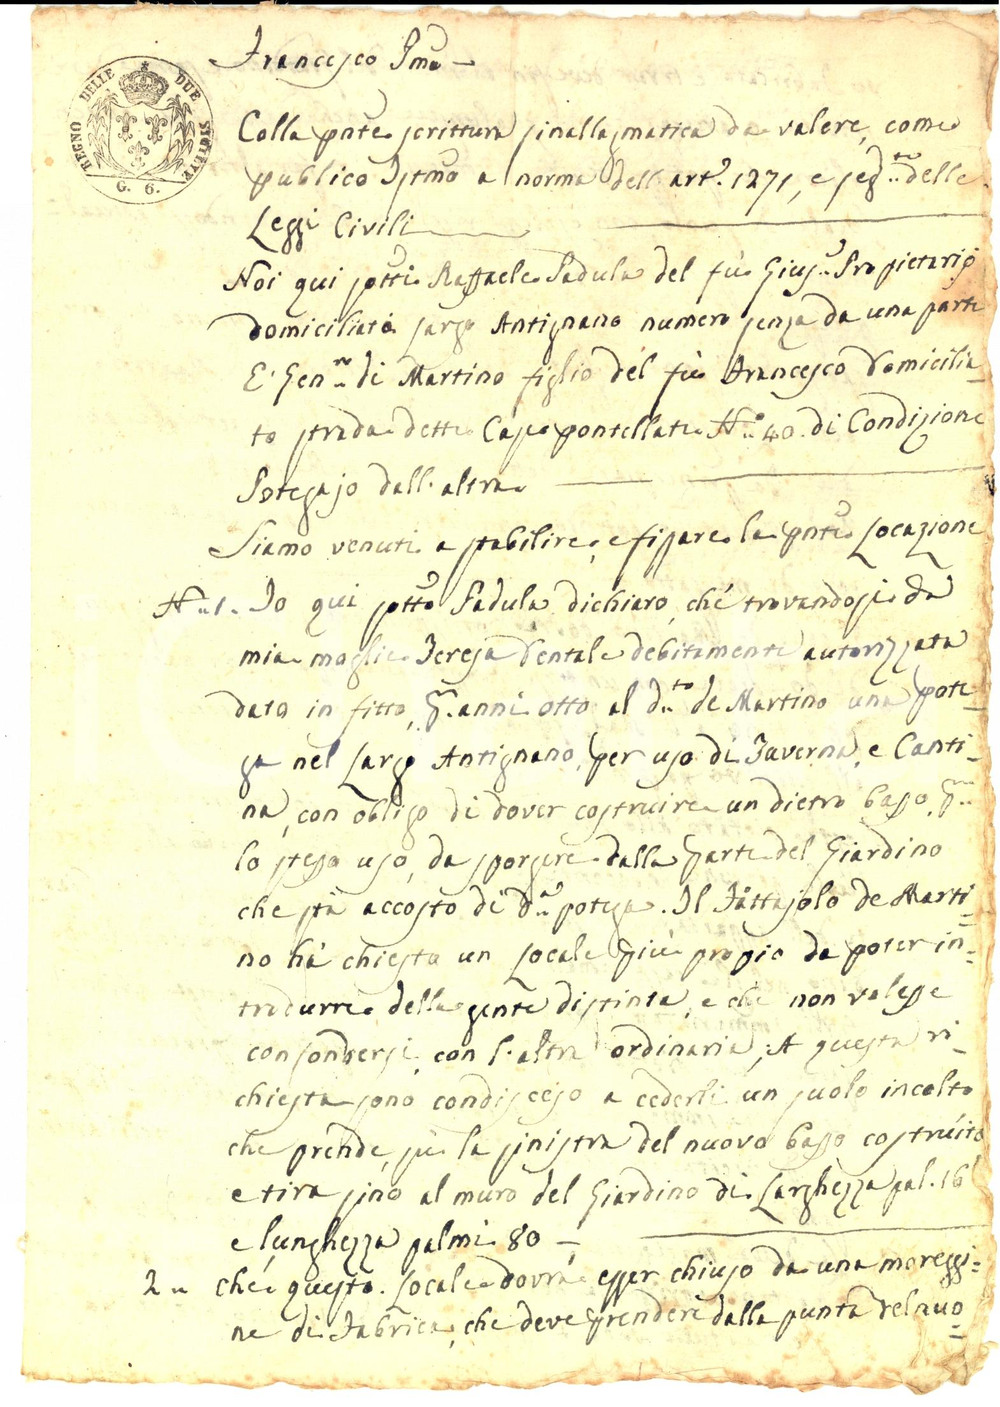 Francesco Pmo
REGNO DELLE DUE SICILIE
G. 6.
Colla pnte scrittura sinallagmatica da valere, come
publico Istmo a norma dell'art°. 1271, e seg:to delle
Leggi Civili
Noi qui sotti Raffaele Padula del fù Gius:e Propietario
domiciliato Largo Antignano numero senza da una parte
E' Gen:ro di Martino figlio del fù Francesco Domicilia=
to strada detta Capo pontellate N:o 40. di Condizione
Potegajo dall'altra
Siamo venuti a stabilire, e fissare la pnte Locazione
N:1. Io qui sotto Padula dichiaro, ché trovandosi da
mia moglie Teresa Ventale debitamente autorizzata
data in fitto, p: anni otto al d:to de Martino una pote=
ga nel Largo Antignano, per uso di Taverna, e Canti=
na, con obligo di dover costruire un dietro basso, p:
lo stesso uso, da sporgere dalla parte del Giardino
che stà accosto di d:a potega. Il Fittajolo de Marti=
no hà chiesto un Locale più propio da poter in=
trodurre della gente distinta, e che non volesse
confondersi con l'altra ordinaria; A questa ri=
chiesta sono condisceso a cederli un suolo incolto
che prende, sù la sinistra del nuovo basso costruito
e tira sino al muro del Giardino di Larghezza pal. 16
e lunghezza palmi 80
2: ché questo Locale dovrà esser chiuso da una moreggi=
ne di Fabrica, che deve prendere dalla punta del nuo=